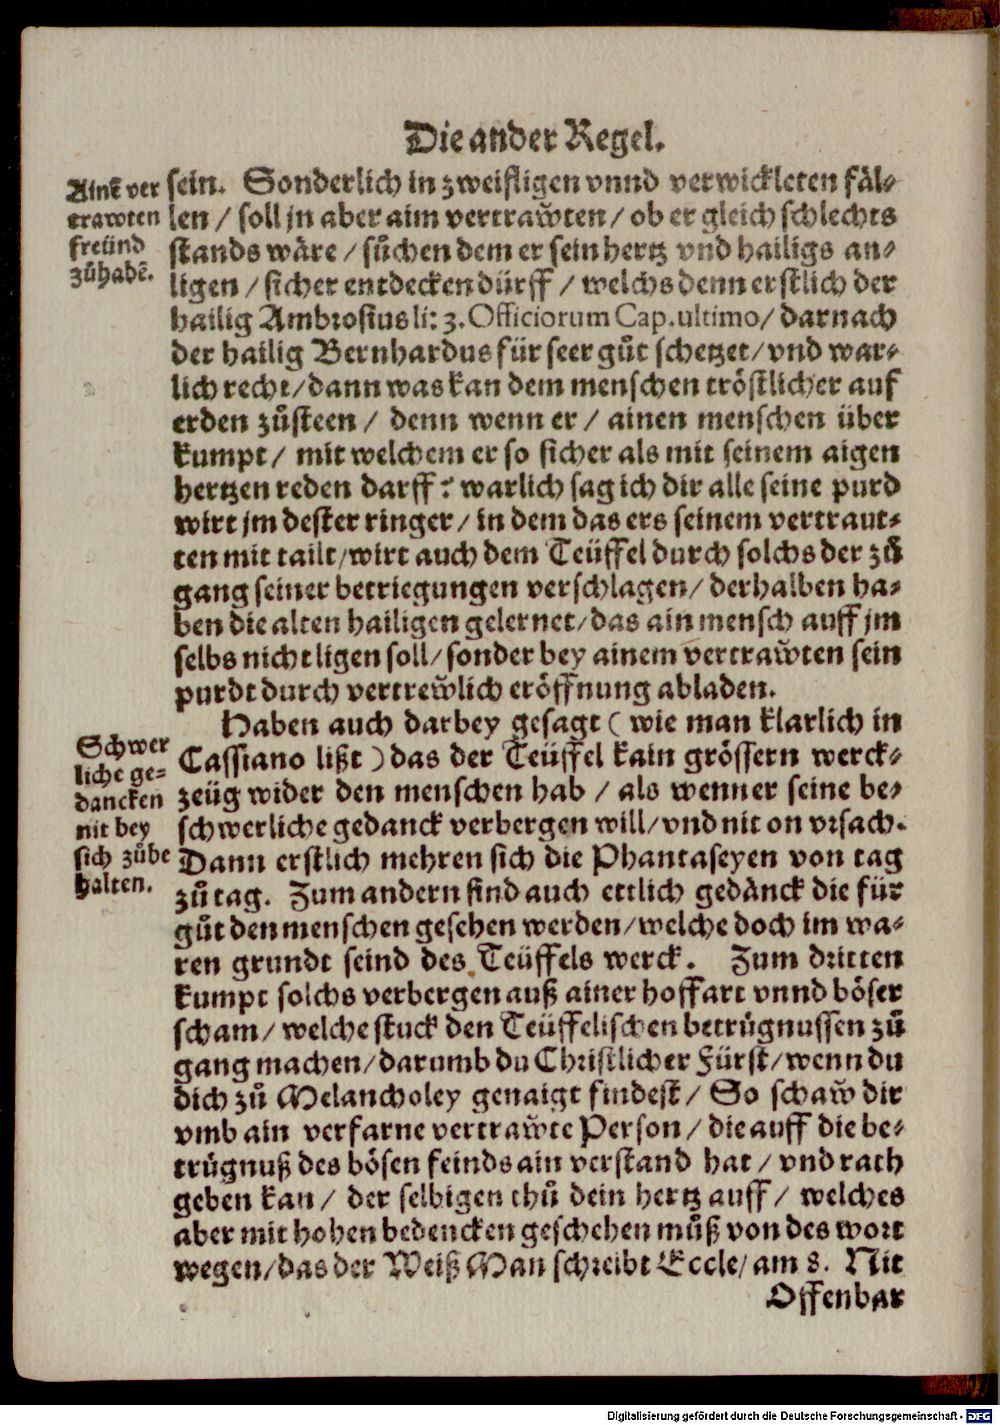 Die ander Regel.
Ainē ver
trawten
freünd
zůhabē.
sein. Sonderlich in zweifligen vnnd verwickleten fäl-
len / soll jn aber aim vertraẘten / ob er gleich schlechts
stands wäre / sůchen dem er sein hertz vnd hailigs an-
ligen / sicher entdecken dürff / welchs denn erstlich der
hailig Ambrosius li: 3. Officiorum Cap. ultimo / darnach
der hailig Bernhardus für seer gůt schetzet / vnd war-
lich recht / dann was kan dem menschen tröstlicher auf
erden zůsteen / denn wenn er / ainen menschen über
kumpt / mit welchem er so sicher als mit seinem aigen
hertzen reden darff? warlich sag ich dir alle seine purd
wirt jm dester ringer / in dem das ers seinem vertraut-
ten mit tailt / wirt auch dem Teüffel durch solchs der zů
gang seiner betriegungen verschlagen / derhalben ha-
ben die alten hailigen gelernet / das ain mensch auff jm
selbs nicht ligen soll / sonder bey ainem vertraẘten sein
purdt durch vertreẘlich eröffnung abladen.
Haben auch darbey gesagt ( wie man klarlich in
Cassiano lißt ) das der Teüffel kain grössern werck-
zeüg wider den menschen hab / als wenn er seine be-
schwerliche gedanck verbergen will / vnd nit on vrsach.
Dann erstlich mehren sich die Phantaseyen von tag
zů tag. Zum andern sind auch ettlich gedänck die für
gůt den menschen gesehen werden / welche doch im wa-
ren grundt seind des Teüffels werck. Zum dritten
kumpt solchs verbergen auß ainer hoffart vnnd böser
scham / welche stuck den Teüffelischen betrůgnussen zů
gang machen / darumb du Christlicher Fürst / wenn du
dich zů Melancholey genaigt findest / So schaẘ dir
vmb ain verfarne vertraẘte Person / die auff die be-
trůgnuß des bösen feinds ain verstand hat / vnd rath
geben kan / der selbigen thů dein hertz auff / welches
aber mit hohen bedencken geschehen můß von des wort
wegen / das der Weiß Man schreibt Eccle / am 8. Nit
Offenbar
Schwer
liche ge-
dancken
nit bey
sich zůbe
halten.
Digitalisierung gefördert durch die Deutsche Forschungsgemeinschaft - DFG